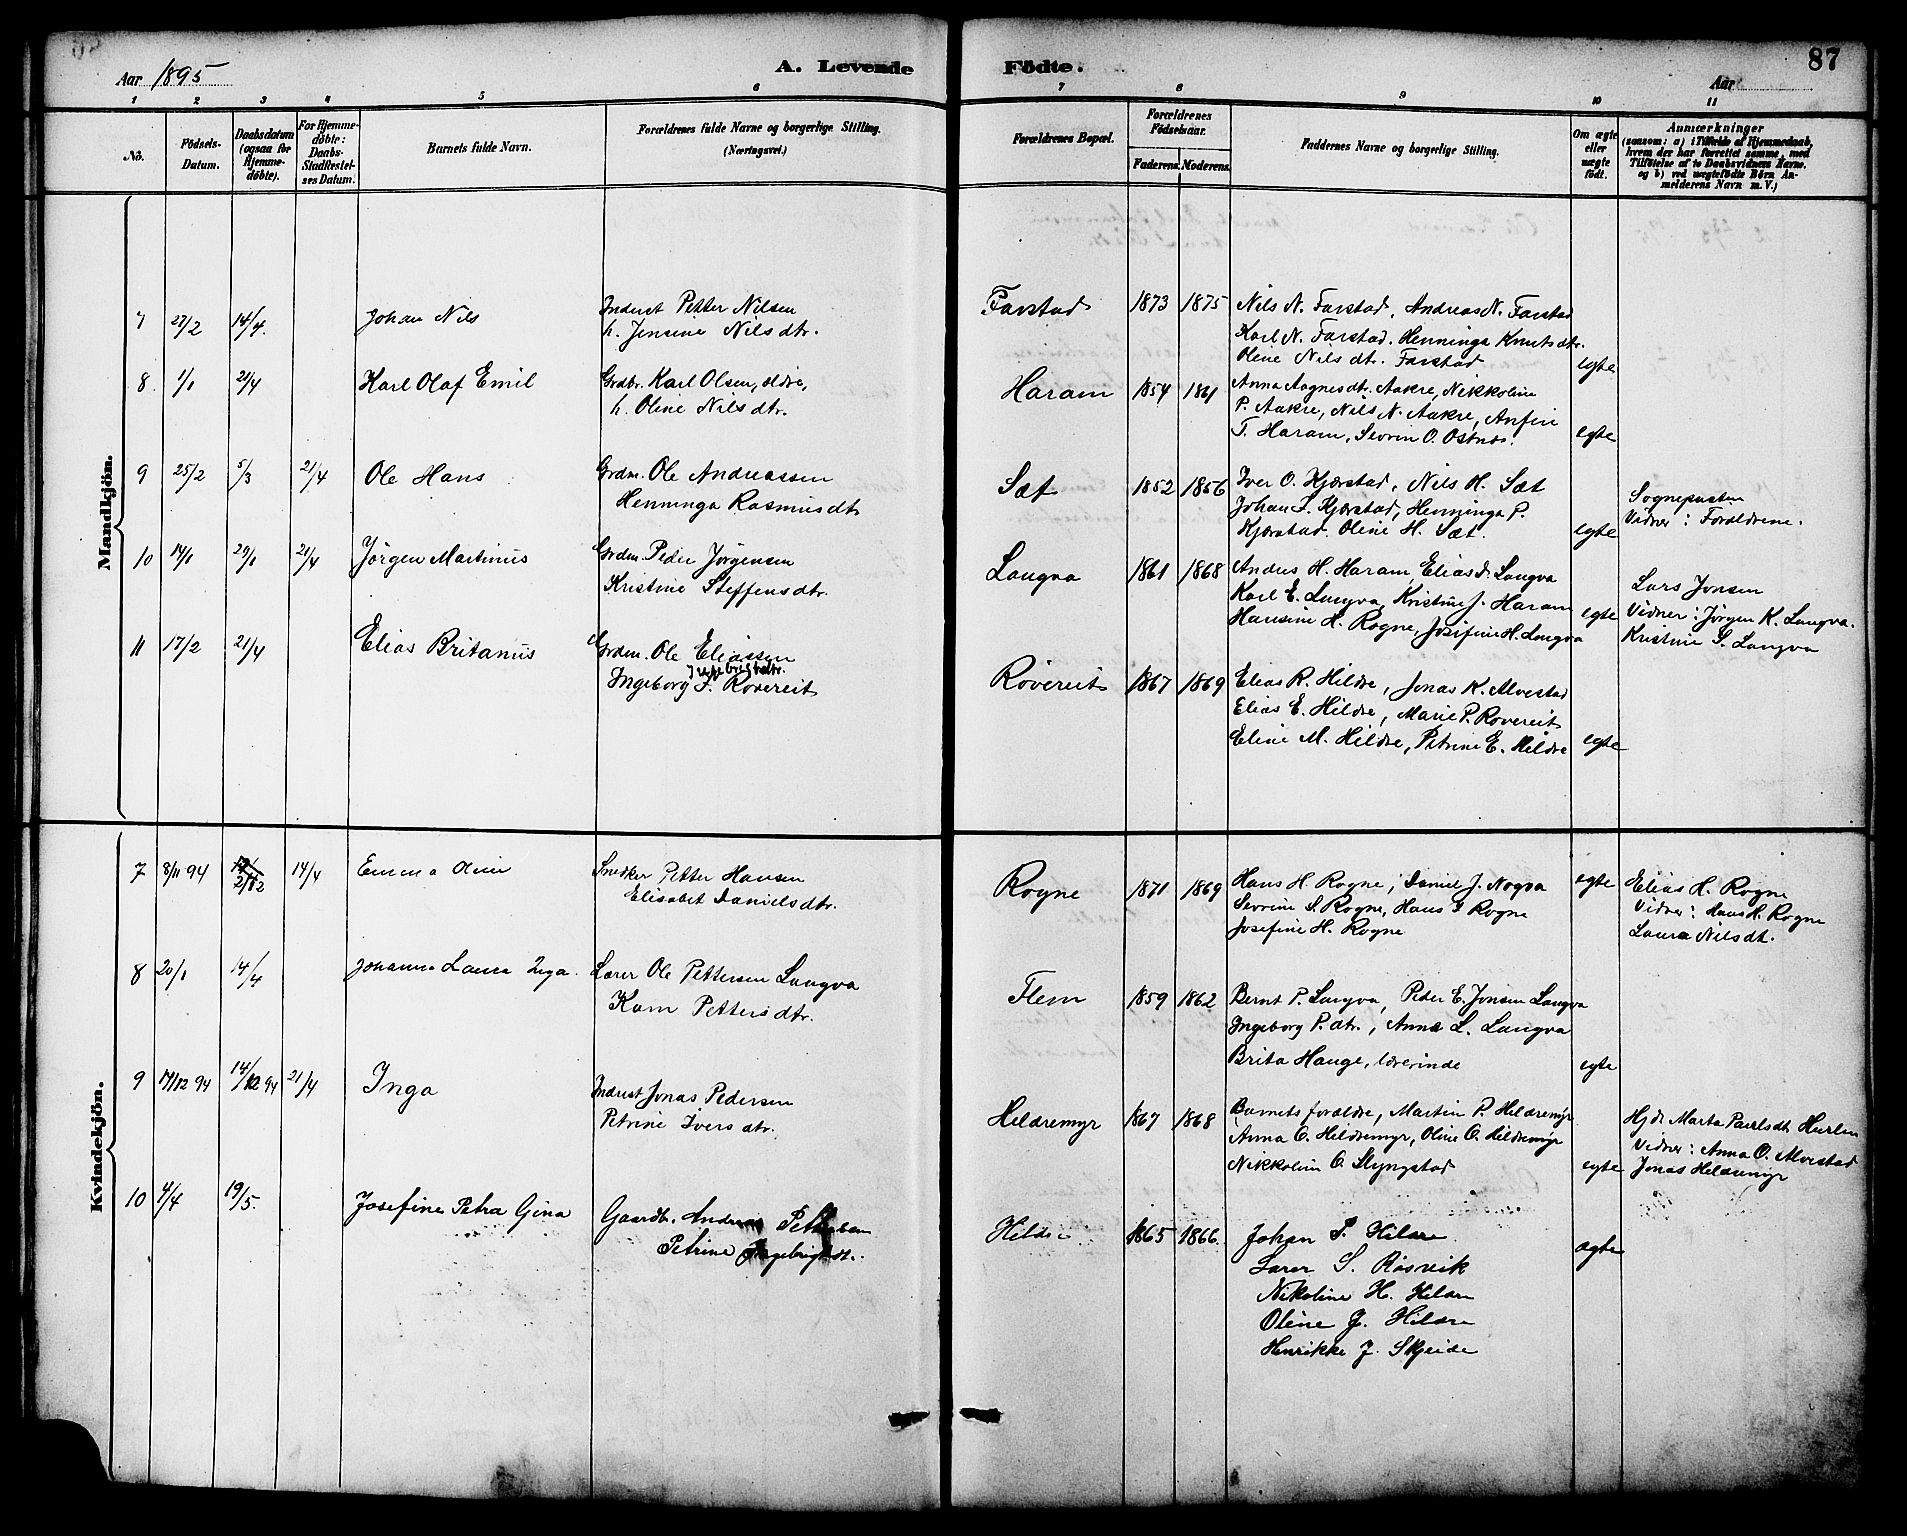 Aar 1895
A. Levende Födte.
87
Aar
1 2 3 4 5 6 7 8 9 10 11
No.
Födsels-Datum.
Daabsdatum (ogsaa for Hjemmedöbte).
For Hjemmedöbte: Daabs-Stadfæstelses Datum.
Barnets fulde Navn.
Forældrenes fulde Navne og borgerlige Stilling. (Næringsvei.)
Forældrenes Bopæl.
Forældrenes Födselsaar.
Faderens. Moderens.
Faddernes Navne og borgerlige Stilling.
Om ægte eller uægte födt.
Anmærkninger
(saasom: a) i Tilfælde af Hjemmedaab, hvem der har forrettet samme, med Tilföielse af to Daabsvidners Navne. og b) ved uægtefödte Börn Anmelderens Navn m. V.)
Mandkjön.
7 27/2 14/4. Johan Nils
Inderst Petter Nilsen
h. Jensine Nilsdtr.
Farstad 1873 1875
Nils N. Farstad, Andreas N. Farstad
Karl N. Farstad. Henninga Knutsdtr.
Oline Nilsdtr. Farstad
egte
8. 1/1 21/4 Karl Olaf Emil
Grdbr. Karl Olsen, ældre,
h. Oline Nilsdtr.
Haram 1854 1861
Anna Aagnesdtr. Aakre, Nikkoline
P. Aakre, Nils N. Aakre, Anfin
T. Haram, Sevrin O. Ostnes.
egte
9 25/2 5/3 21/4 Ole Hans
Grdm. Ole Andreassen
Henninga Rasmusdtr
Sæt 1852 1856
Iver O. Kjærstad, Nils H. Sæt
Johan I. Kjærstad, Henninga P.
Kjærstad. Oline H. Sæt.
egte
Sognepresten
Vidner: Forældrene.
10 14/1 29/1 21/4 Jörgen Martinus
Grdm. Peder Jørgensen
Kristine Steffensdtr.
Longva 1861 1868
Andres H. Haram, Elias I. Longva
Karl E. Longva, Kristine J. Haram
Hansine H. Rogne, Josefine H. Longva
egte
Lars Jonsen
Vidner: Jørgen K. Longva.
Kristine S. Longva
11 17/2 21/4 Elias Britanus
Grdm. Ole Eliassen
Ingebrigtsdtr.
Ingeborg I. Rovereit
Røvereit 1867 1869
Elias R. Hildre, Jonas K. Alvestad
Elias E. Hildre, Marie P. Rovereit
Eline M. Hildre, Petrine E. Hildre
egte
Kvindekjön.
7 8/11 94 2/12 14/4 Emma
Snedker Petter Hansen
Elisabet Danielsdtr.
Rogne 1871 1869
Hans H. Rogne, Daniel J. Nogva
Sevrine S. Rogne, Hans I Rogne
Josefine H. Rogne
egte
Elias H. Rogne
Vidner: Hans H. Rogne
Laura Nilsdt.
8 20/1 14/4 Johanna Laura Inga.
Lærer Ole Pettersen Longva
Karn Pettersdtr.
Flem 1859 1862
Bernt P. Longva, Peder E. Jonsen Longva
Ingeborg P. dtr., Anna L. Longva
Brita Hauge, lærerinde
egte
9 14/12 94 21/4 Inga
Inderst Jonas Pedersen
Petrine Iversdtr.
Hildremyr 1867 1868
Barnets forældre, Martin P. Hildremyr
Anna O. Hildremyr, Oline O. Hildremyr
Nikkoline O. Slyngstad
egte
Hjd. Marta Paulsdt. Hurlen
Vidner: Anna O. Alvestad
Jonas Hildremyr
10 4/4 19/5. Josefine Petra Gina
Gaardbr. Andreas
Petrine Ingebrigtsdt.
Hildre 1865 1866.
Johan P. Hildre
Lærer S. Røsvik
Nikoline H. Hildre
Oline J. Hildre
Henrikke J. Skjeide
ægte